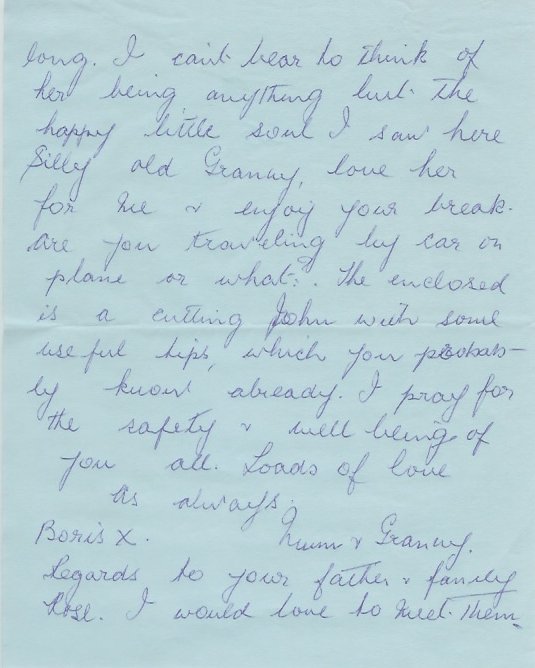 long. I can't bear to think of
her being anything but the
happy little soul I saw here
Silly old Granny, love her
for me & enjoy your break.
Are you traveling by car or
plane or what?. The enclosed
is a cutting John with some
useful tips, which you probab-
ly know already. I pray for
the safety & well being of
you all. Loads of love
as always.
Boris X. Mum & Granny.
Regards to your father & family
Rose. I would love to meet them